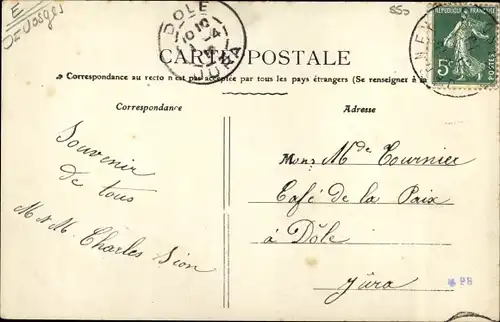 E
D=Vosges
550
DOLE
10 10
4
JURA
RÉPUBLIQUE FRANÇAISE
5c
POSTES
CARTE POSTALE
Correspondance au recto n'est pas acceptée par tous les pays étrangers (Se renseigner à la
Correspondance
Adresse
Souvenir
de tous
M & M. Charles Sion
Mons Mde Tournier
Café de la Paix
à Dôle
Jura
* 98